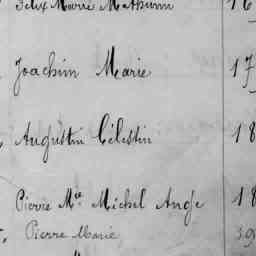 Felix Marie Mathurin 16
Joachim Marie 17
Augustin Célestin 18
Pierre Mie Michel Ange 18
Pierre Marie 39